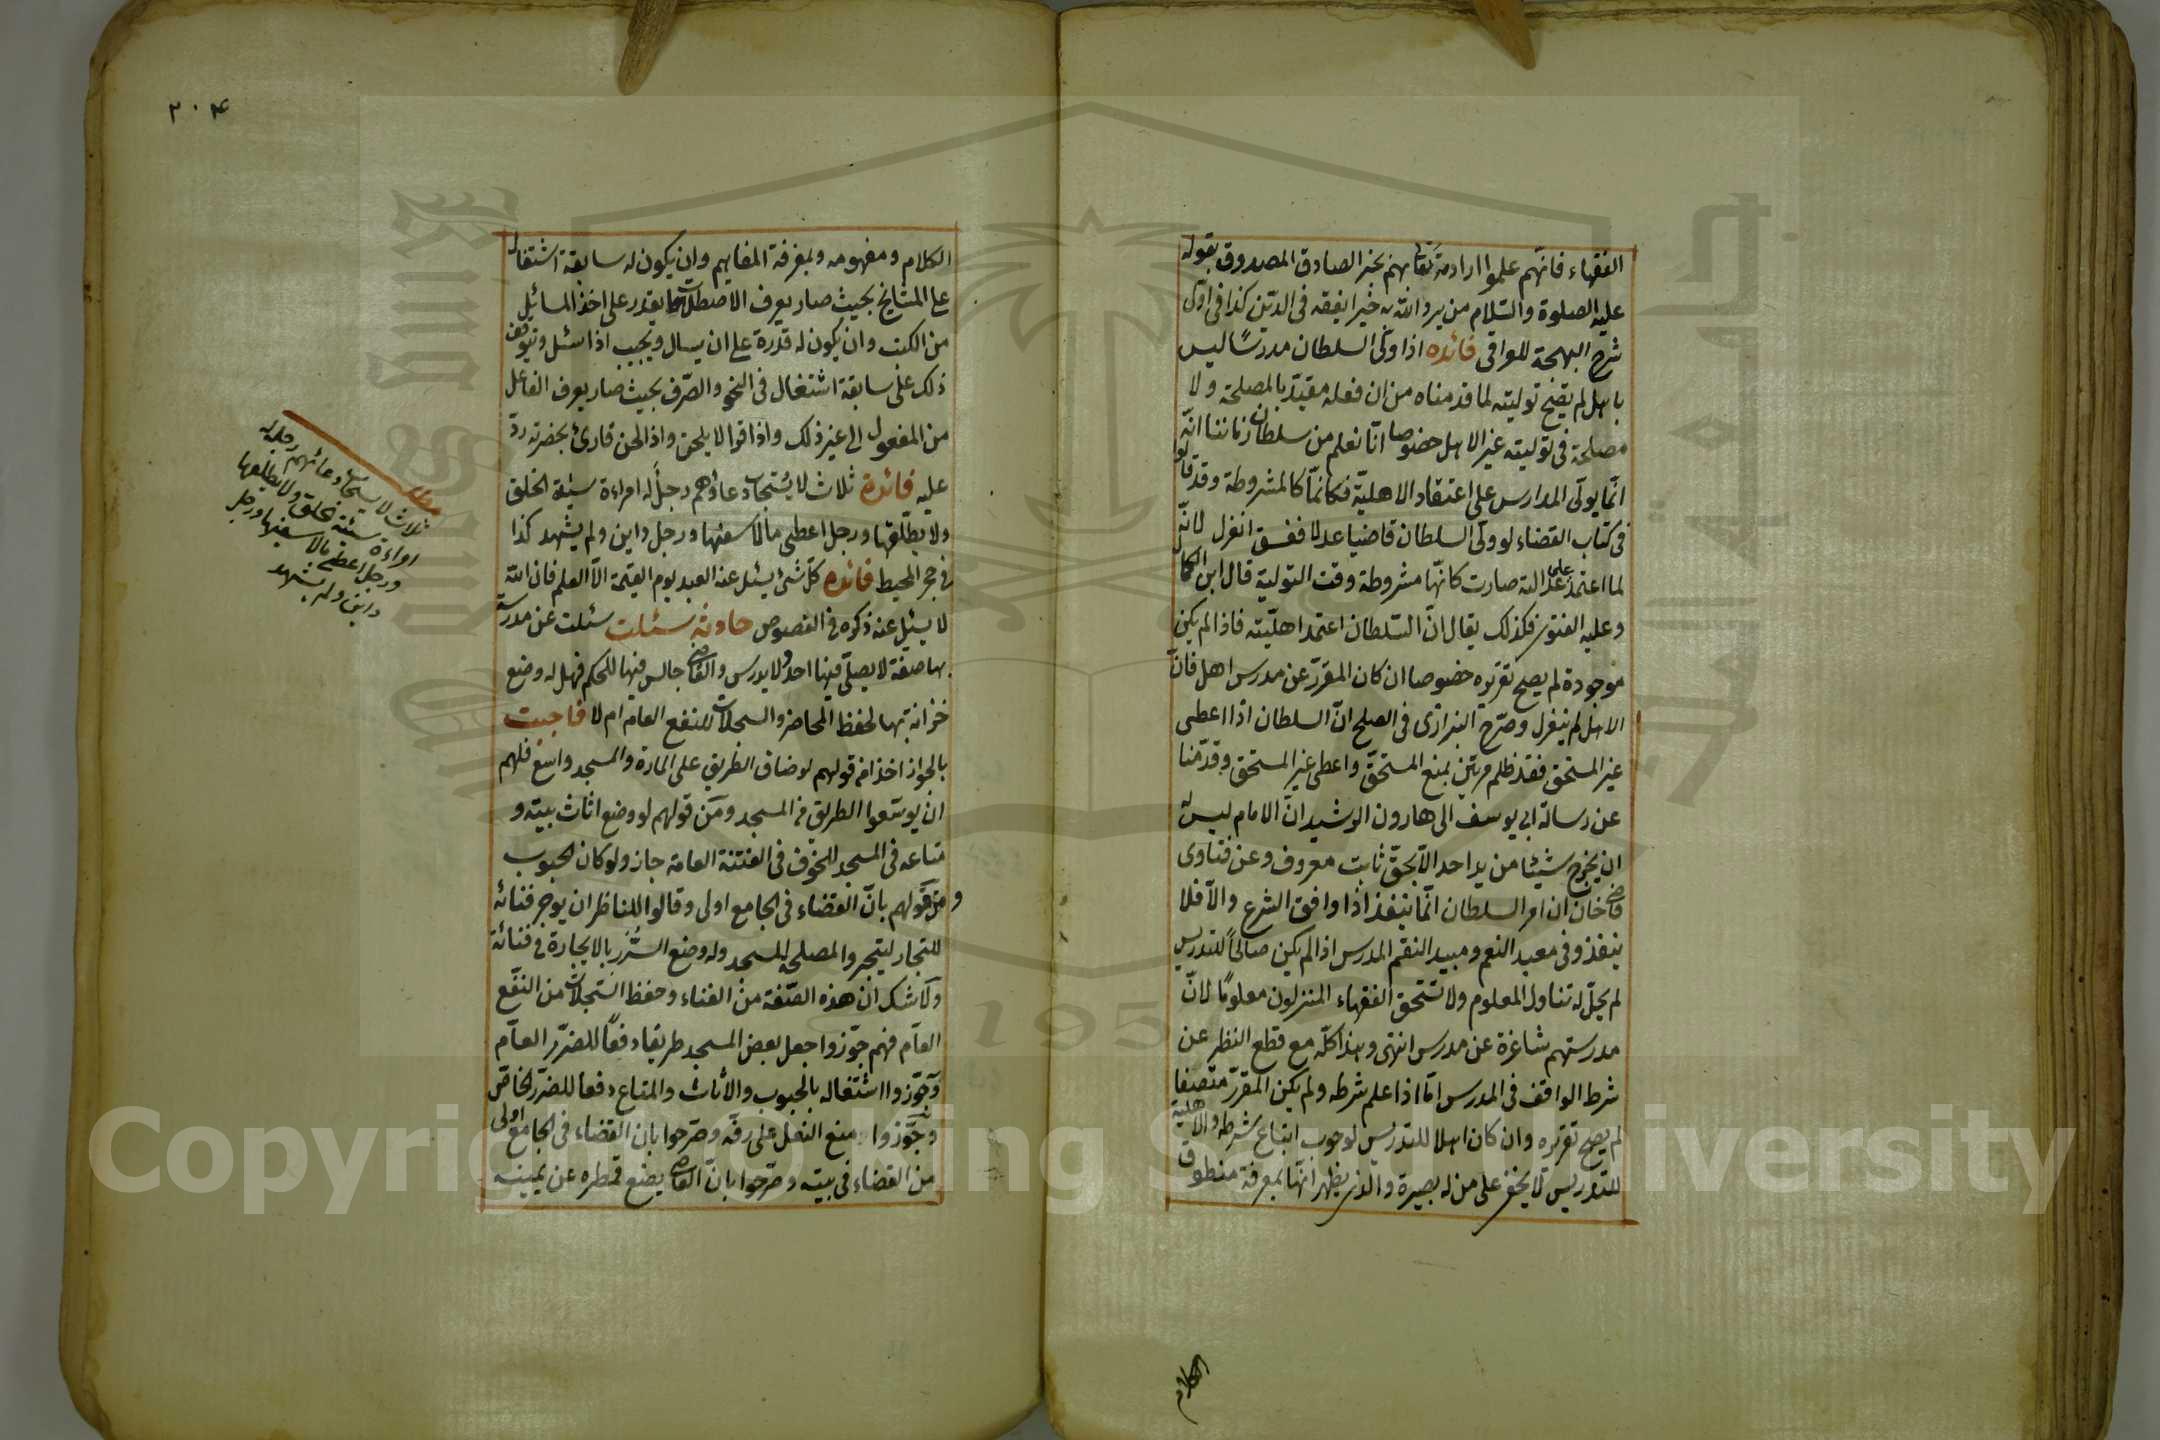 الفقهاء فانهم علموا ارادته تعالى بهم بخبر الصادق المصدوق بقوله
عليه الصلوة والسلام من يرد الله به خيرا يفقهه في الدين كذا في اول
شرح البهجة للعراقي فائده اذا ولى السلطان مدرسًا ليس
باهل لم يصح توليته لما قدمناه من ان فعله مقيد بالمصلحة ولا
مصلحة في توليته غير الاهل خصوصا انّا نعلم من سلطان زماننا انّه
انما يولى المدارس على اعتقاد الاهلية فكانهّا كالمشروطة وقد قالوا
في كتاب القضاء لو ولى السلطان قاضيا عدلا ففسق انعزل لانّه
لما اعتمد على عدالته صارت كانّها مشروطة وقت التولية قال ابن الكمال
وعليه الفتوى فكذلك يقال انّ السلطان اعتمد اهليّته فاذا لم يكن
موجودة لم يصح تقريره خصوصا ان كان المقرّر عن مدرس اهل فانّ
الاهل لم ينعزل وصرّح البزازى في الصلح انّ السلطان اذا اعطى
غير المستحق فقد ظلم مرتين بمنع المستحقّ واعطى غير المستحق وقدّمنا
عن رسالة ابي يوسف الى هارون الرشيد انّ الامام ليس له
ان يخرج شيئا من يد احد الّا بحقّ ثابت معروف وعن فتاوى
قاضي خان ان امر السلطان انّما ينفذ اذا وافق الشرع والّا فلا
ينفذ وفى معيد النعم ومبيد النقم المدرس اذا لم يكن صالحًا للتدريس
لم يحلّ له تناول المعلوم ولا تستحق الفقهاء المنزلون معلومًا لانّ
مدرستهم شاغرة عن مدرس انتهى وهذا كلّه مع قطع النظر عن
شرط الواقف في المدرس امّا اذا علم شرطه ولم يكن المقرّر متّصفا
لم يصح تقريره وان كان اهلا للتدريس لوجوب اتباع شرطه والاهلية
للتدريس لا يخفى على من له بصيرة والّذى يظهر انّها بمعرفة منطوق
الكلام
٢٠٤
الكلام ومفهومه وبمعرفة المفاهيم وان يكون له سابقة اشتغال
على المشايخ بحيث صار يعرف الاصطلاحات يقدر على اخذ المسائل
من الكتب وان يكون له قدرة على ان يسال ويجيب اذا سئل ويتوقف
ذلك على سابقة اشتغال في النحو والصّرف بحيث صار يعرف الفاعل
من المفعول الى غير ذلك واذا قرا لا يلحن واذا لحن قارئ بحضرته ردّ
عليه فائدة ثلاث لا يُستجاب دعاؤهم رجلٌ له امراءة سيّئة الخلق
ولا يطلّقها ورجل اعطى مالا سفيها ورجل داين ولم يشهد كذا
في حجر المحيط فائده كلّ شئ يسئل عنه العبد يوم القيمة الّا العلم فان الله
لا يسئل عنه ذكره في الفصوص حادثه سئلت سئلت عن مدرسة
بها صفة لا يصلّى فيها احد ولا يدرس والقاضي جالس فيها للحكم فهل له وضع
خزانة بها لحفظ المحاضر والسجلات للنفع العام ام لا فاجبت
بالجواز اخذا من قولهم لو ضاق الطريق على المارة والمسجد واسع فلهم
ان يوسّعوا الطريق من المسجد ومن قولهم لو وضع اثاث بيته و
متاعه في المسجد للخوف في الفتنة العامة جاز ولو كان الحبوب
و من قولهم بانّ القضاء في الجامع اولى وقالوا للناظر ان يوجر فنائه
للتجار ليتجروا لمصلحة المسجد وله وضع السُّرر بالايجارة في فنائه
ولا شك انّ هذه الصّفة من الفناء وحفظ السّجلات من النّفع
العامّ فهم جوّزوا جعل بعض المسجد طريقا دفعًا للضرر العامّ
وجوّزوا اشتغاله بالحبوب والأثاث والمتاع دفعا للضرر الخاصّ
وجوّزوا وضع النعل على رفّه وصرّحوا بان القضاء في الجامع اولى
من القضاء في بيته وصرّحوا بانّ القاضي يضع قمطره عن يمينه
مطلب
ثلاث لا يستجاب دعائهم رجل له
امراءة سيئة الخلق ولا يطلقها
ورجل اعطى مالا سفيها ورجل
داين ولم يشهد
Copyright © King Saud University
1957